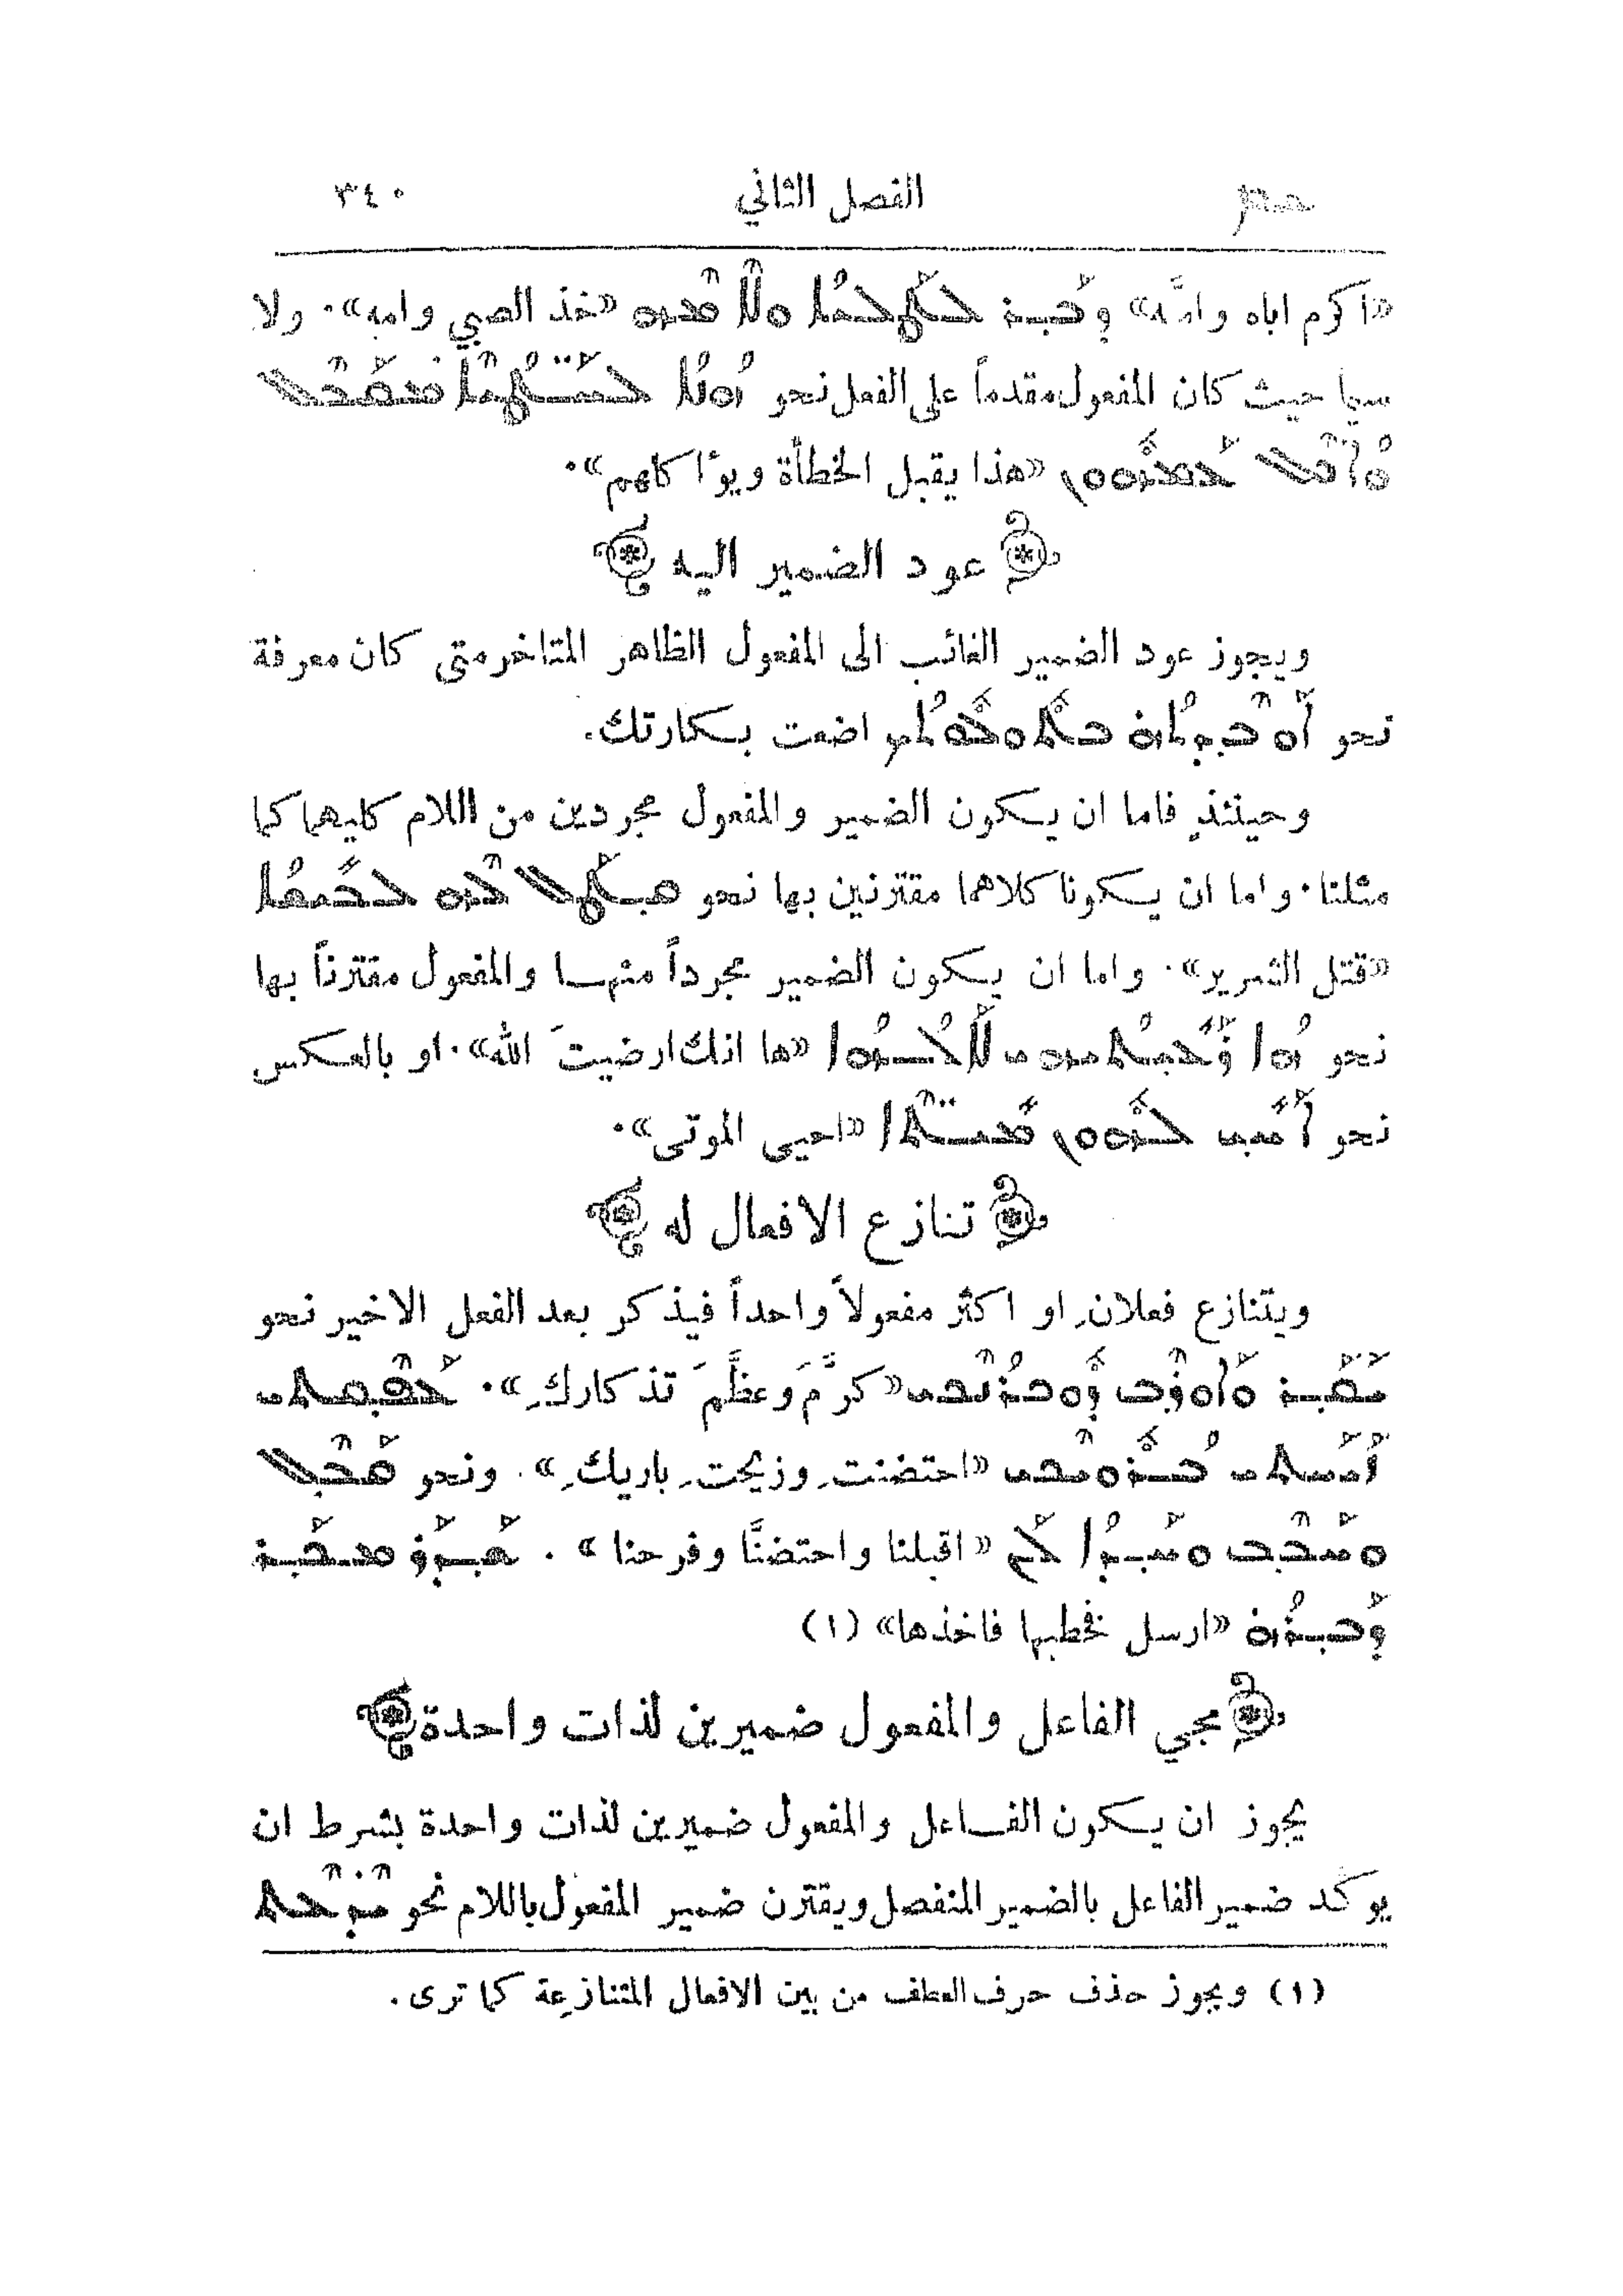 الفصل الثاني ٣٤٠
«اكرم اباه وامَّه» ܕܒܪ ܠܛܠܝܐ ܘܠܐܡܗ «خذ الصبي وامه»٠ ولا
سيما حيث كان المفعول مقدماً على الفعل نحو ܗܢܐ ܠܚܛܝ̈ܐ ܡܩܒܠ
ܘܐܟܠ ܥܡܗܘܢ «هذا يقبل الخطأة ويوٴاكلهم»٠
عود الضمير اليه
ويجوز عود الضمير الغائب الى المفعول الظاهر المتاخر متى كان معرفة
نحو ܐܘܒܕܬܗ ܒܬܘܠܘܬܟ اضعت بكارتك.
وحينئذٍ فاما ان يكون الضمير والمفعول مجردين من اللام كليهما كما
مثلنا٠ واما ان يكونا كلاهما مقترنين بها نحو ܩܛܠ ܠܗ ܠܒܝܫܐ
«قتل الشرير»٠ واما ان يكون الضمير مجرداً منها والمفعول مقترناً بها
نحو ܗܐ ܠܐܠܗܐ «ها انك ارضيتَ الله»٠ او بالعكس
نحو ܐܚܝ ܠܗܘܢ ܡܝ̈ܬܐ «احيى الموتى»٠
تنازع الافعال له
ويتنازع فعلانِ او اكثر مفعولاً واحداً فيذكر بعد الفعل الاخير نحو
ܝܩܪ ܘܐܘܪܒ ܕܘܟܪܢܟܝ «كرَّمَ وعظَّمَ تذكاركِ»٠ ܥܦܩܬܝ
ܐܙܝܚܬܝ ܒܪܘܝܟܝ «احتضنتِ وزيحتِ باريكِ»٠ ونحو ܩܒܠ
ܘܚܒܒ ܠܢ «اقبلنا واحتضنَّا وفرحنا» ٠ ܫܕܪ ܡܟܪ
ܕܒܪܗ «ارسل فخطبها فاخذها» (١)
مجي الفاعل والمفعول ضميرين لذات واحدة
يجوز ان يكون الفاعل والمفعول ضميرين لذات واحدة بشرط ان
يوكد ضمير الفاعل بالضمير المنفصل ويقترن ضمير المفعول باللام نحو
(١) ويجوز حذف حرف العطف من بين الافعال المتنازعة كما ترى .